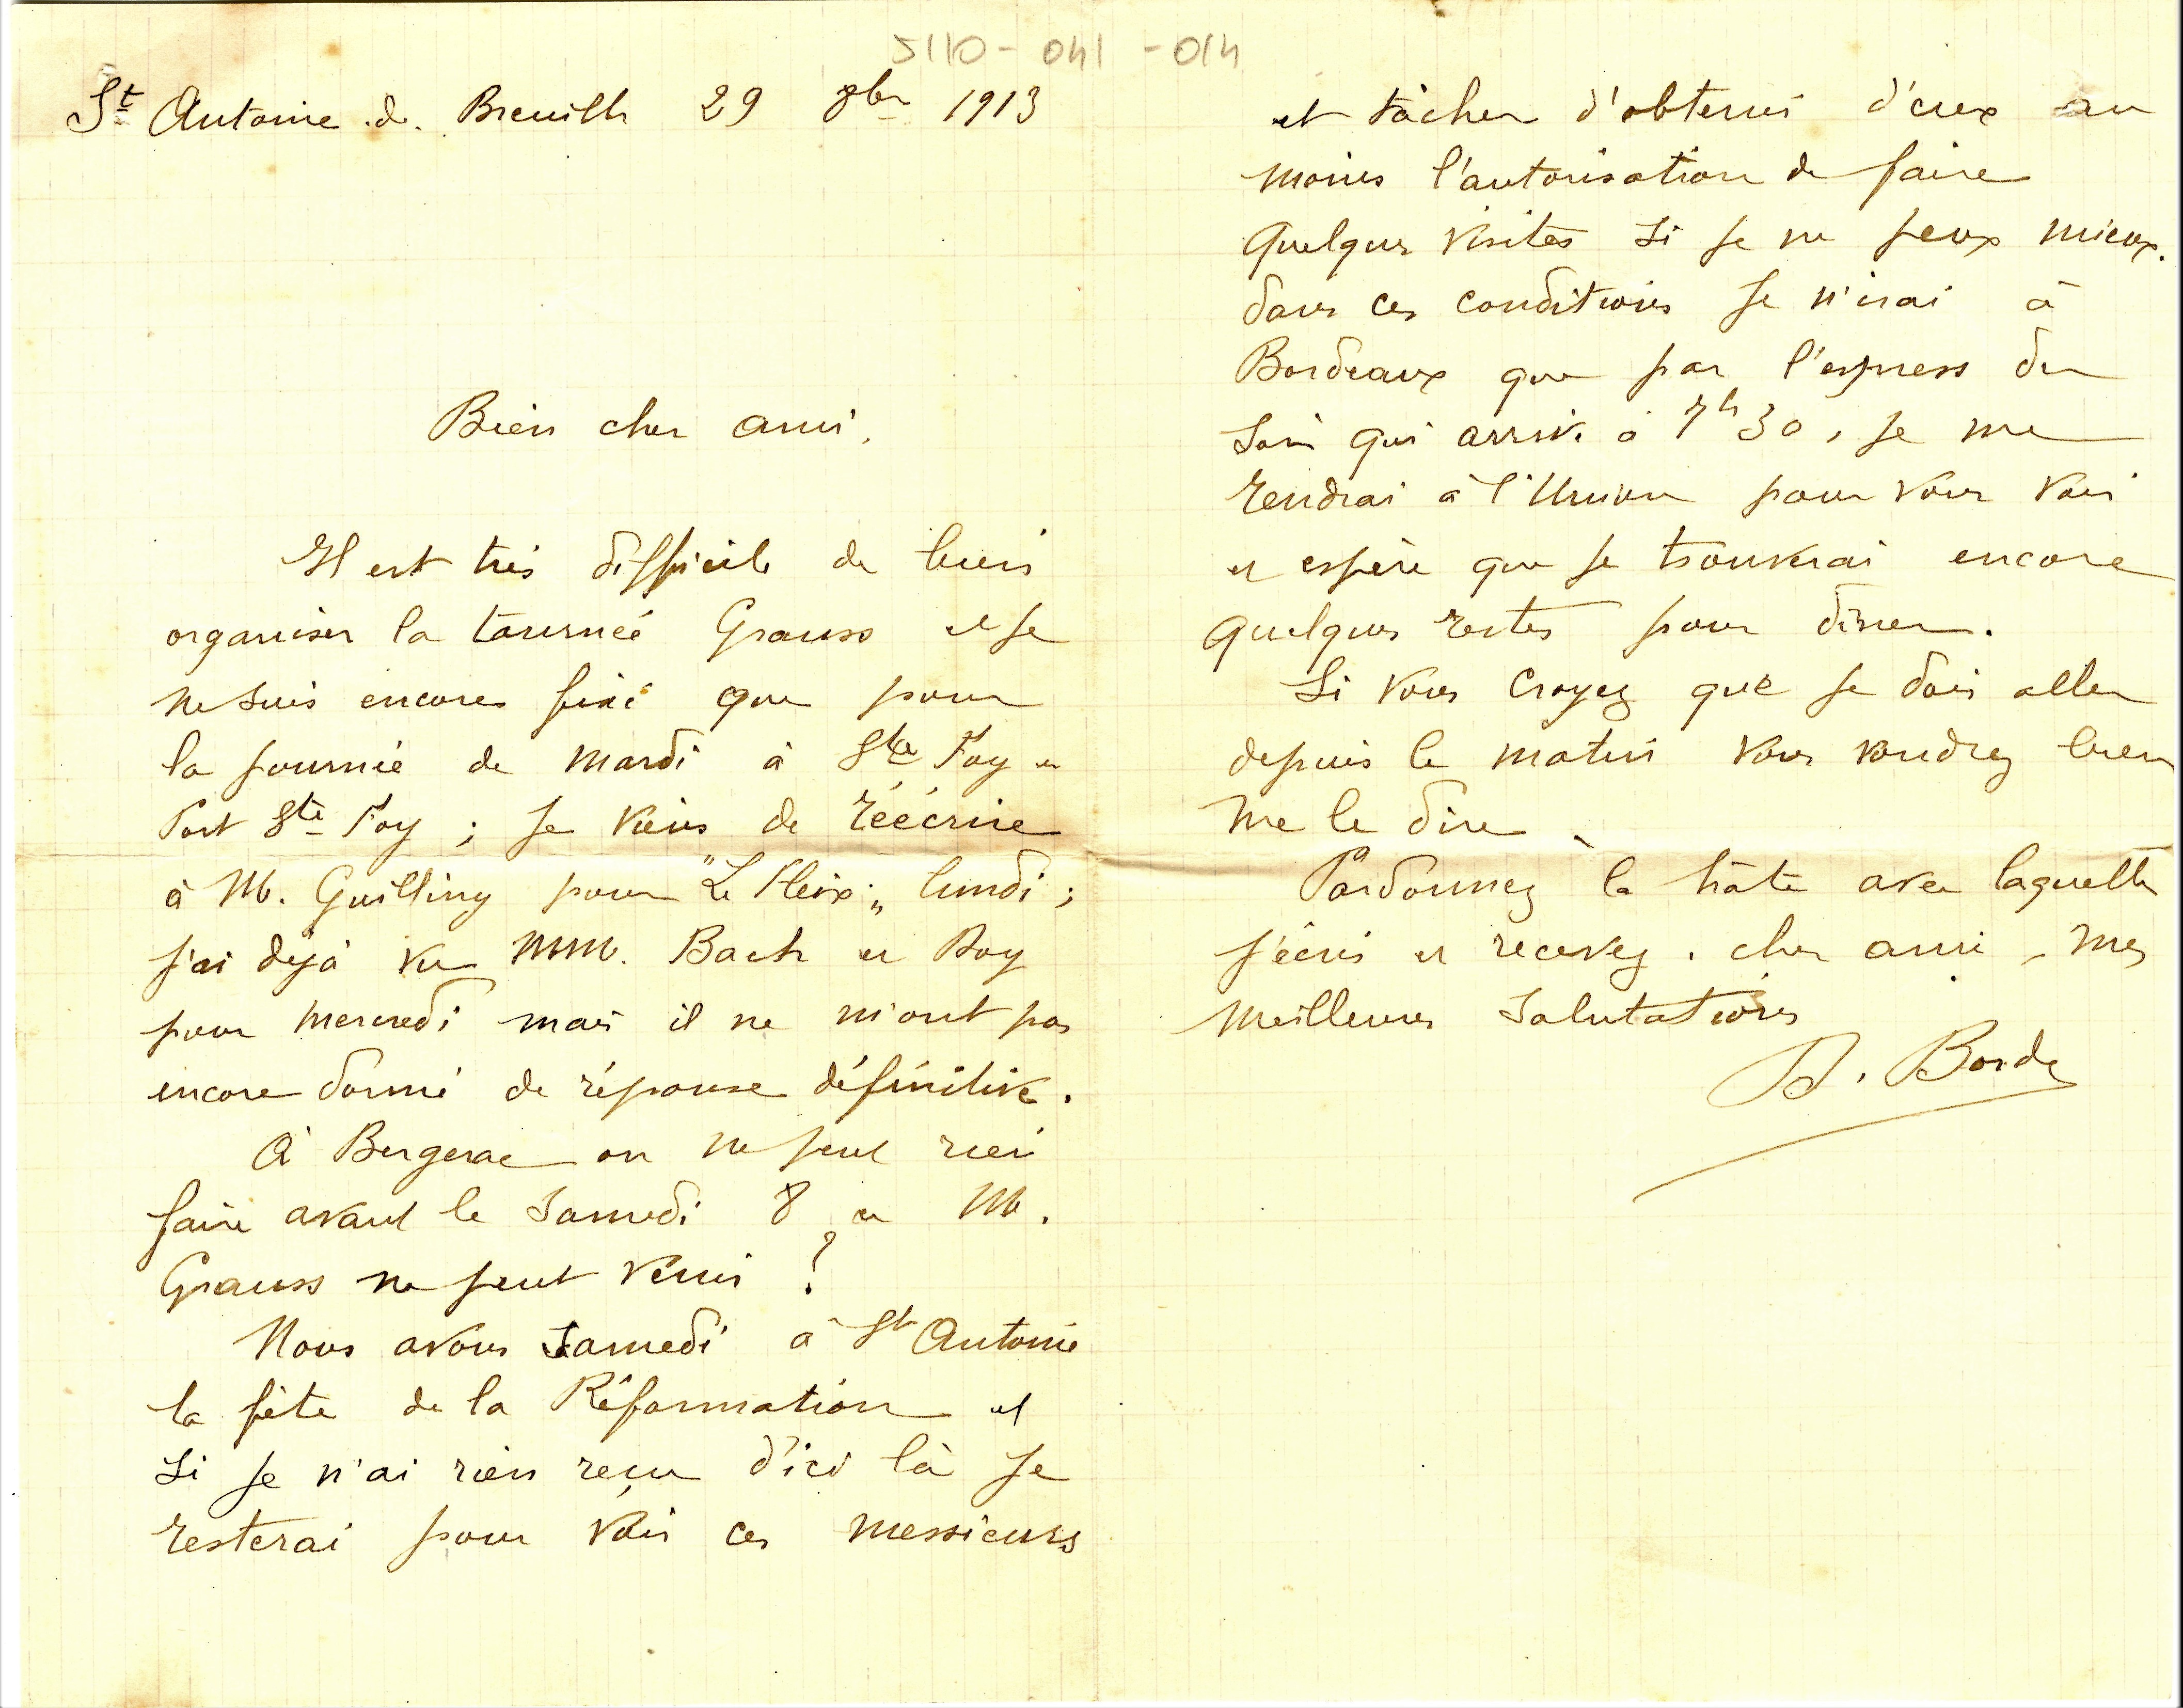 5110-041-014
St Antoine de Breuilh 29 8bre 1913
Bien cher ami,
Il est très difficile de bien
organiser la tournée Grauss et je
ne suis encore fixé que pour
la journée de Mardi à Ste Foy et
Port Ste Foy ; je viens de réécrire
à M. Guilling pour "Le Fleix" lundi ;
j'ai déjà vu MM. Bach et Roy
pour mercredi mais il ne m'ont pas
encore donné de réponse définitive.
À Bergerac on ne peut rien
faire avant le Samedi 8 et M.
Grauss ne peut venir ?
Nous avons samedi à St Antoine
la fête de la Réformation et
si je n'ai rien reçu d'ici là je
resterai pour voir ces messieurs
et tâcher d'obtenir d'eux au
moins l'autorisation de faire
quelques visites si je ne peux mieux.
dans ces conditions je n'irai à
Bordeaux que par l'express du
soir qui arrive à 7h30, je me
rendrai à l'Union pour vous voir
et espère que je trouverai encore
quelques restes pour dîner.
Si vous croyez que je dois aller
depuis le matin vous voudrez bien
me le dire.
Pardonnez la hâte avec laquelle
j'écris et recevez, cher ami, mes
meilleures salutations
Borde